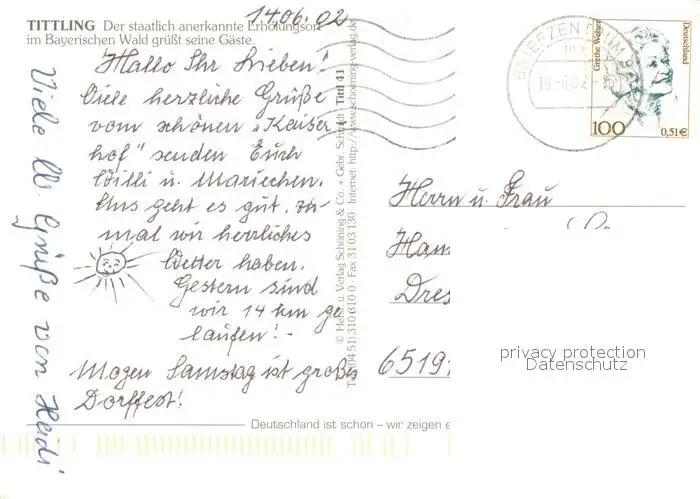 14.06.02
TITTLING Der staatlich anerkannte Erholungsort
im Bayerischen Wald grüßt seine Gäste.
Hallo Ihr Lieben!
Viele herzliche Grüße
vom schönen "Kaiser
hof" senden Euch
Willi u. Mariechen.
Uns geht es gut, zu-
mal wir herrliches
Wetter haben.
Gestern sind
wir 14 km ge
laufen! -
Mogen Samstag ist großes
Dorffest!
Viele lb. Grüße von Heidi
© Herst. u. Verlag Schöning & Co. + Gebr. Schmidt Tittl 41
Tel. (04 51) 310 310 0 - Fax 31 03 130 Internet: http://www.schoening-verlag.de
BRIEFZENTRUM
Grethe Weiser
Deutschland
100
0,51€
Herrn u. Frau
Han
Dres
6519
privacy protection
Datenschutz
Deutschland ist schön – wir zeigen e